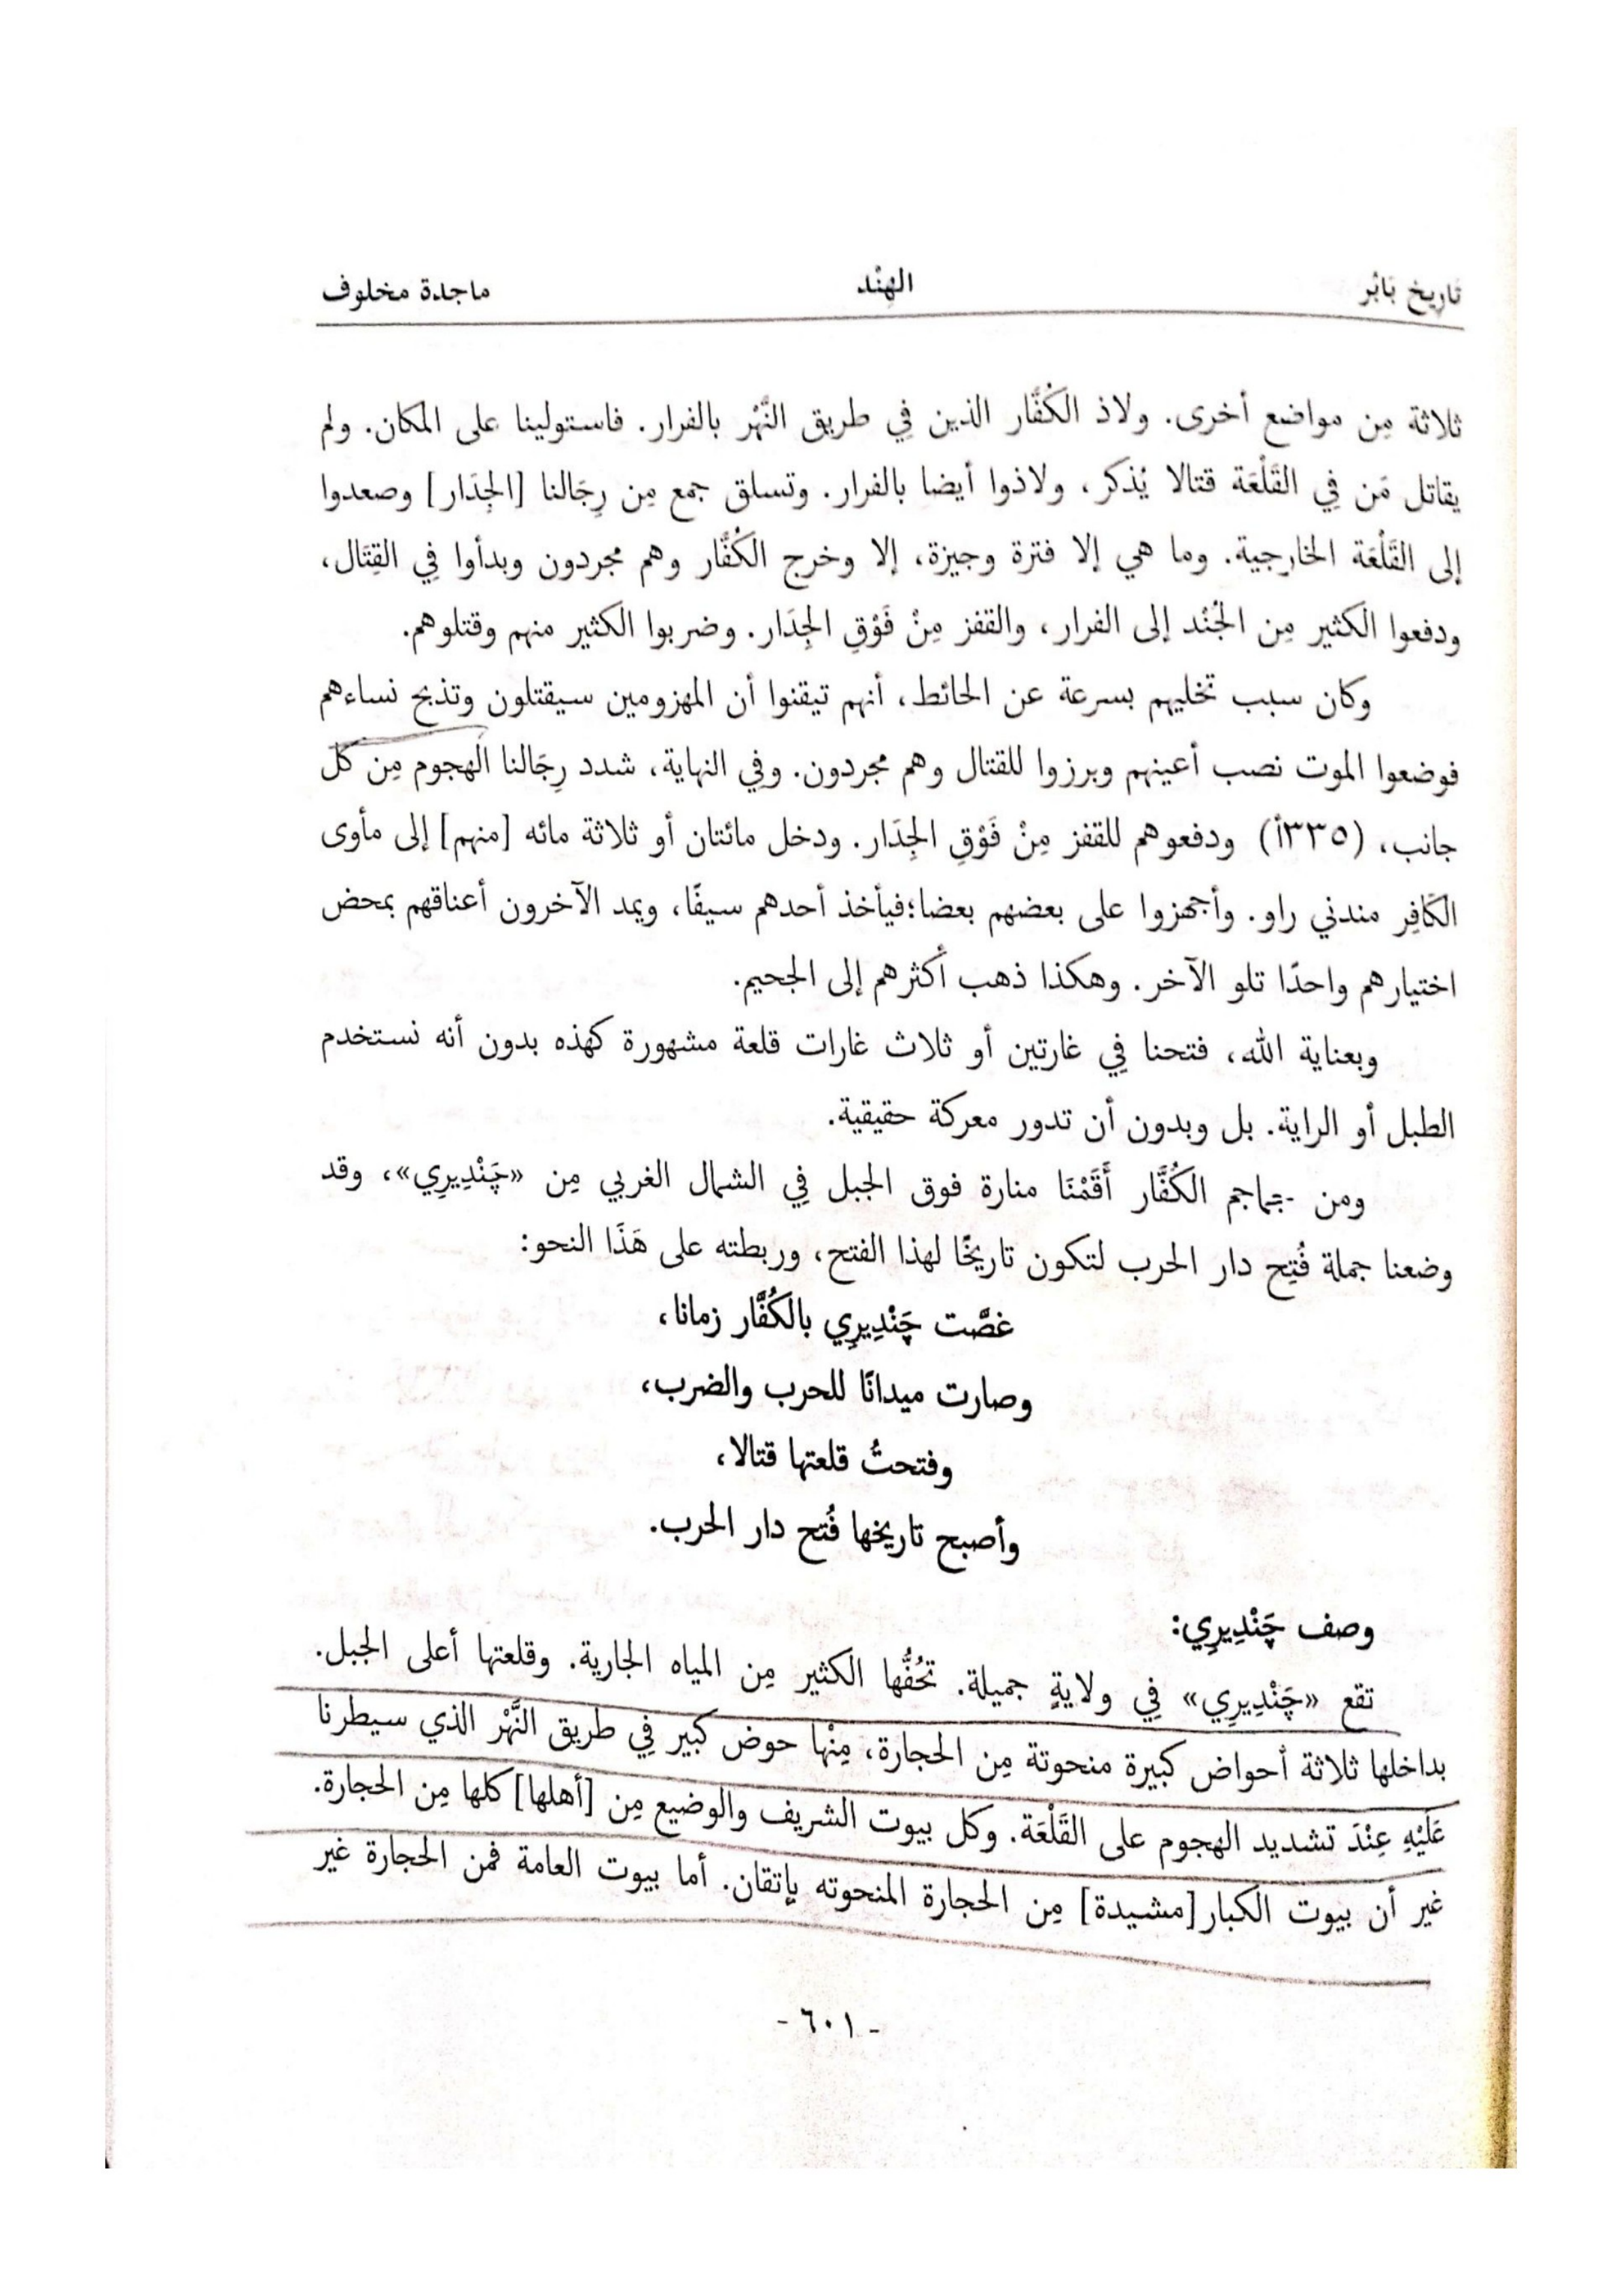 تاريخ بَابُر
الهِنْد
ماجدة مخلوف
ثلاثة مِن مواضع أخرى. ولاذ الكُفَّار الذين فِي طريق النَّهْر بالفرار. فاستولينا على المكان. ولم
يقاتل مَن فِي القَلْعَة قتالا يُذكر، ولاذوا أيضا بالفرار. وتسلق جمع مِن رِجَالنا [الجِدَار] وصعدوا
إلى القَلْعَة الخارجية. وما هي إلا فترة وجيزة، إلا وخرج الكُفَّار وهم مجردون وبدأوا فِي القِتَال،
ودفعوا الكثير مِن الجُنْد إلى الفرار، والقفز مِنْ فَوْقِ الجِدَار. وضربوا الكثير منهم وقتلوهم.
وكان سبب تخليهم بسرعة عن الحائط، أنهم تيقنوا أن المهزومين سيقتلون وتذبح نساءهم
فوضعوا الموت نصب أعينهم وبرزوا للقتال وهم مجردون. وفِي النهاية، شدد رِجَالنا الهجوم مِن كل
جانب، (٣٣٥أ) ودفعوهم للقفز مِنْ فَوْقِ الجِدَار. ودخل مائتان أو ثلاثة مائه [منهم] إلى مأوى
الكَافِر مندني راو. وأجهزوا على بعضهم بعضا؛فيأخذ أحدهم سيفًا، ويمد الآخرون أعناقهم بمحض
اختيارهم واحدًا تلو الآخر. وهكذا ذهب أكثرهم إلى الجحيم.
وبعناية الله، فتحنا فِي غارتين أو ثلاث غارات قلعة مشهورة كهذه بدون أنه نستخدم
الطبل أو الراية. بل وبدون أن تدور معركة حقيقية.
ومن جماجم الكُفَّار أَقَمْنَا منارة فوق الجبل فِي الشمال الغربي مِن «چَنْدِيرِي»، وقد
وضعنا جملة فُتِح دار الحرب لتكون تاريخًا لهذا الفتح، وربطته على هَذَا النحو:
غصَّت چَنْدِيرِي بالكُفَّار زمانا،
وصارت ميدانًا للحرب والضرب،
وفتحتُ قلعتها قتالا،
وأصبح تاريخها فُتح دار الحرب.
وصف چَنْدِيرِي:
تقع «چَنْدِيرِي» فِي ولايةٍ جميلة. تحُفُّها الكثير مِن المياه الجارية. وقلعتها أعلى الجبل.
بداخلها ثلاثة أحواض كبيرة منحوتة مِن الحجارة، مِنْها حوض كبير فِي طريق النَّهْر الذي سيطرنا
عَلَيْهِ عِنْدَ تشديد الهجوم على القَلْعَة. وكل بيوت الشريف والوضيع مِن [أهلها] كلها مِن الحجارة.
غير أن بيوت الكبار [مشيدة] مِن الحجارة المنحوته بإتقان. أما بيوت العامة فمن الحجارة غير
- ٦٠١ -